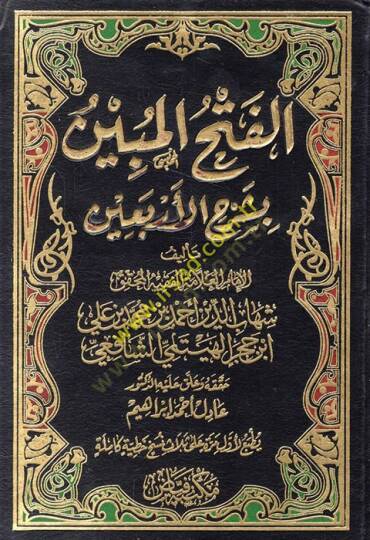 الفتح المبين
بشرح الأربعين
تأليف
الإمام العلامة الفقيه المحقق
شهاب الدين أحمد بن محمد بن علي
ابن حجر الهيتمي الشافعي
حققه وعلق عليه الدكتور
عادل أحمد إبراهيم
يطبع لأول مرة على ثلاث نسخ خطية كاملة
مكتبة فياض